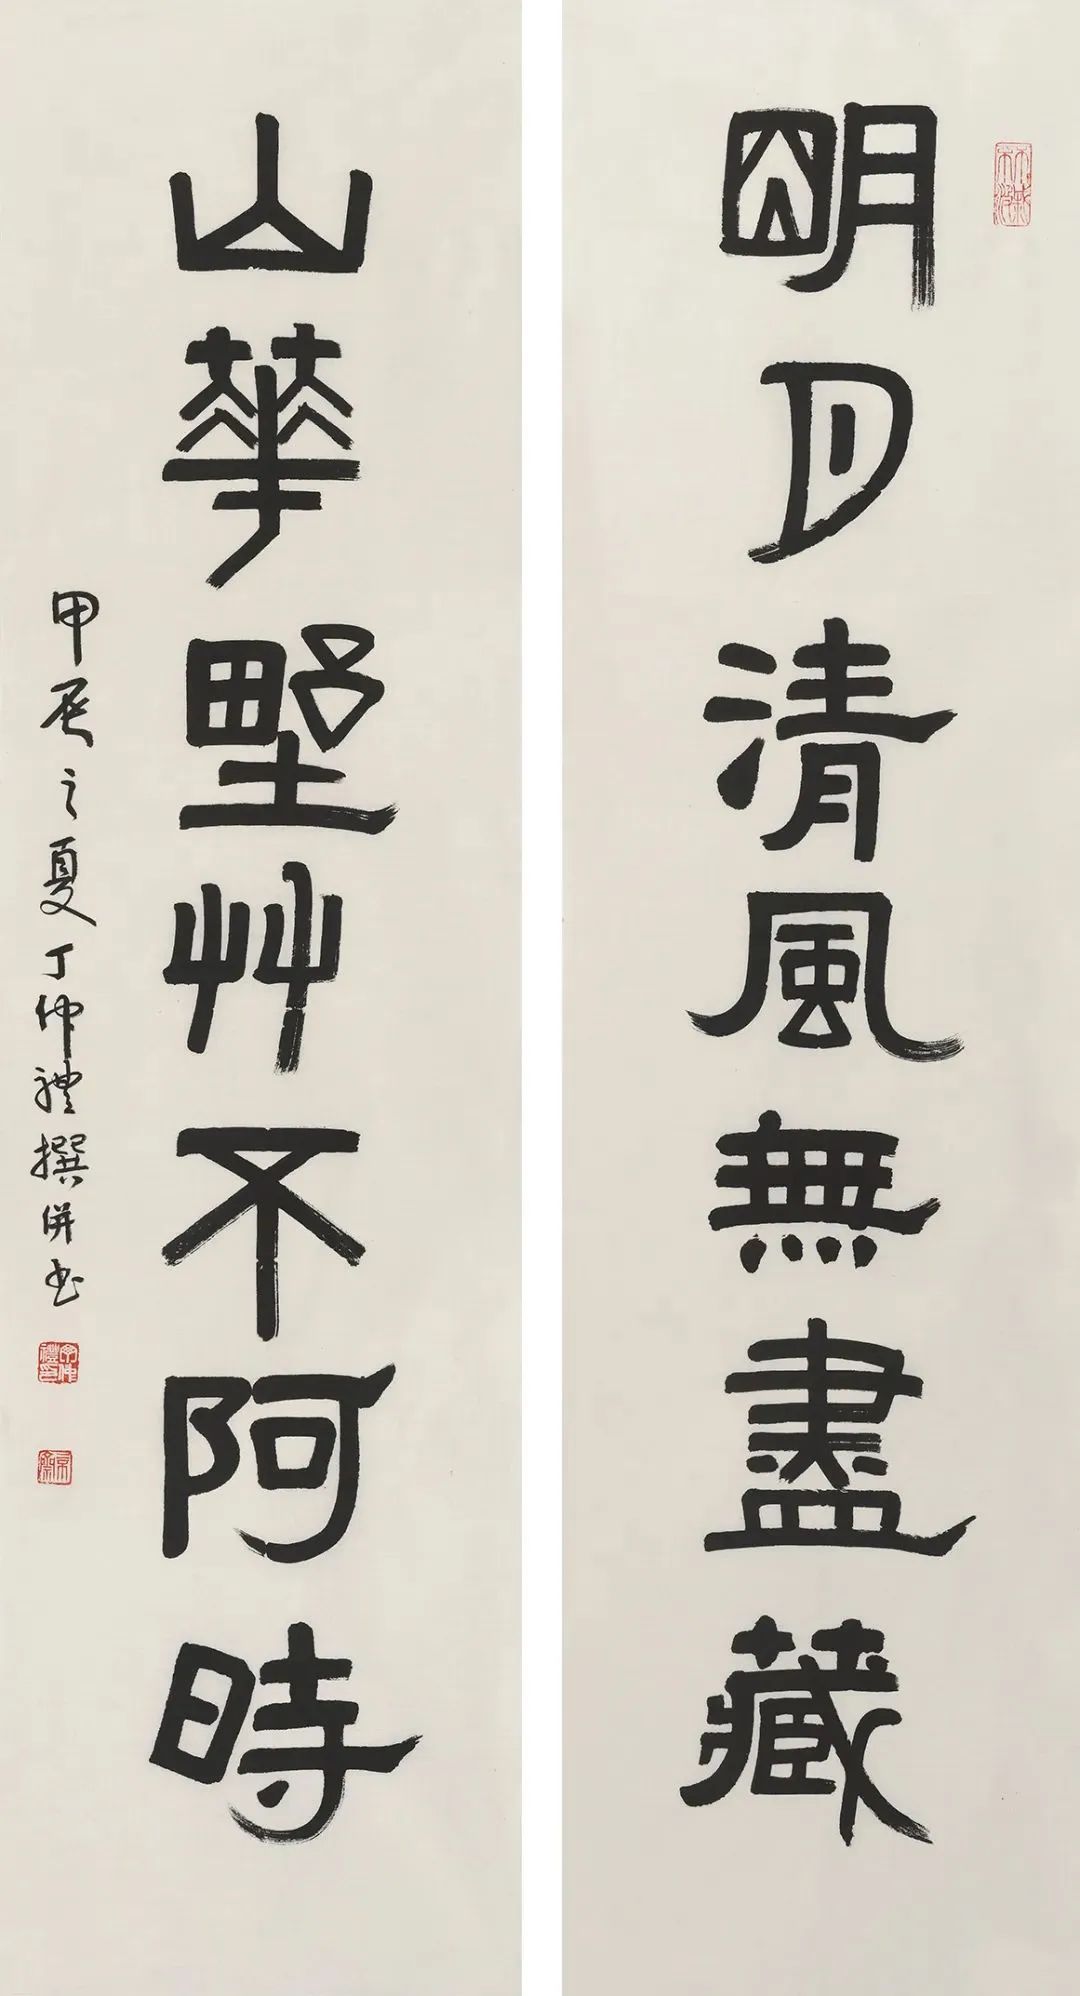 明月清風無盡藏
山華墅艸不阿時
甲辰之夏丁仲禮撰併书